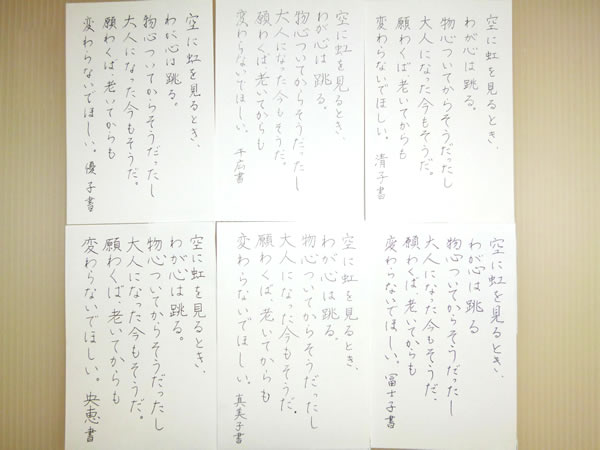 空に虹を見るとき、
わが心は跳る。
物心ついてからそうだったし
大人になった今もそうだ。
願わくば、老いてからも
変わらないでほしい。優子書
空に虹を見るとき、
わが心は跳る。
物心ついてからそうだったし
大人になった今もそうだ。
願わくば、老いてからも
変わらないでほしい。千広書
空に虹を見るとき、
わが心は跳る。
物心ついてからそうだったし
大人になった今もそうだ。
願わくば、老いてからも
変わらないでほしい。清子書
空に虹を見るとき、
わが心は跳る。
物心ついてからそうだったし
大人になった今もそうだ。
願わくば、老いてからも
変わらないでほしい。央恵書
空に虹を見るとき、
わが心は跳る。
物心ついてからそうだったし
大人になった今もそうだ。
願わくば、老いてからも
変わらないでほしい。真美子書
空に虹を見るとき、
わが心は跳る
物心ついてからそうだったし
大人になった今もそうだ、
願わくば、老いてからも
変わらないでほしい。冨士子書